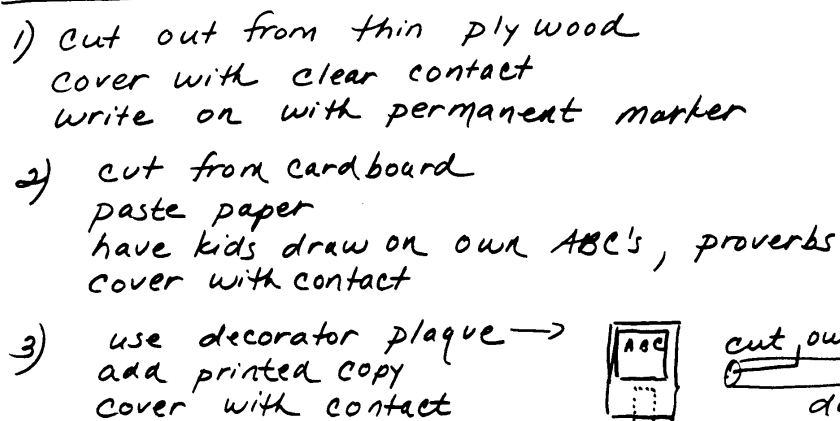 1) cut out from thin plywood
cover with clear contact
write on with permanent marker
2) cut from cardboard
paste paper
have kids draw on own ABC's, proverbs
cover with contact
3) use decorator plaque →
add printed copy
cover with contact
ABC
cut